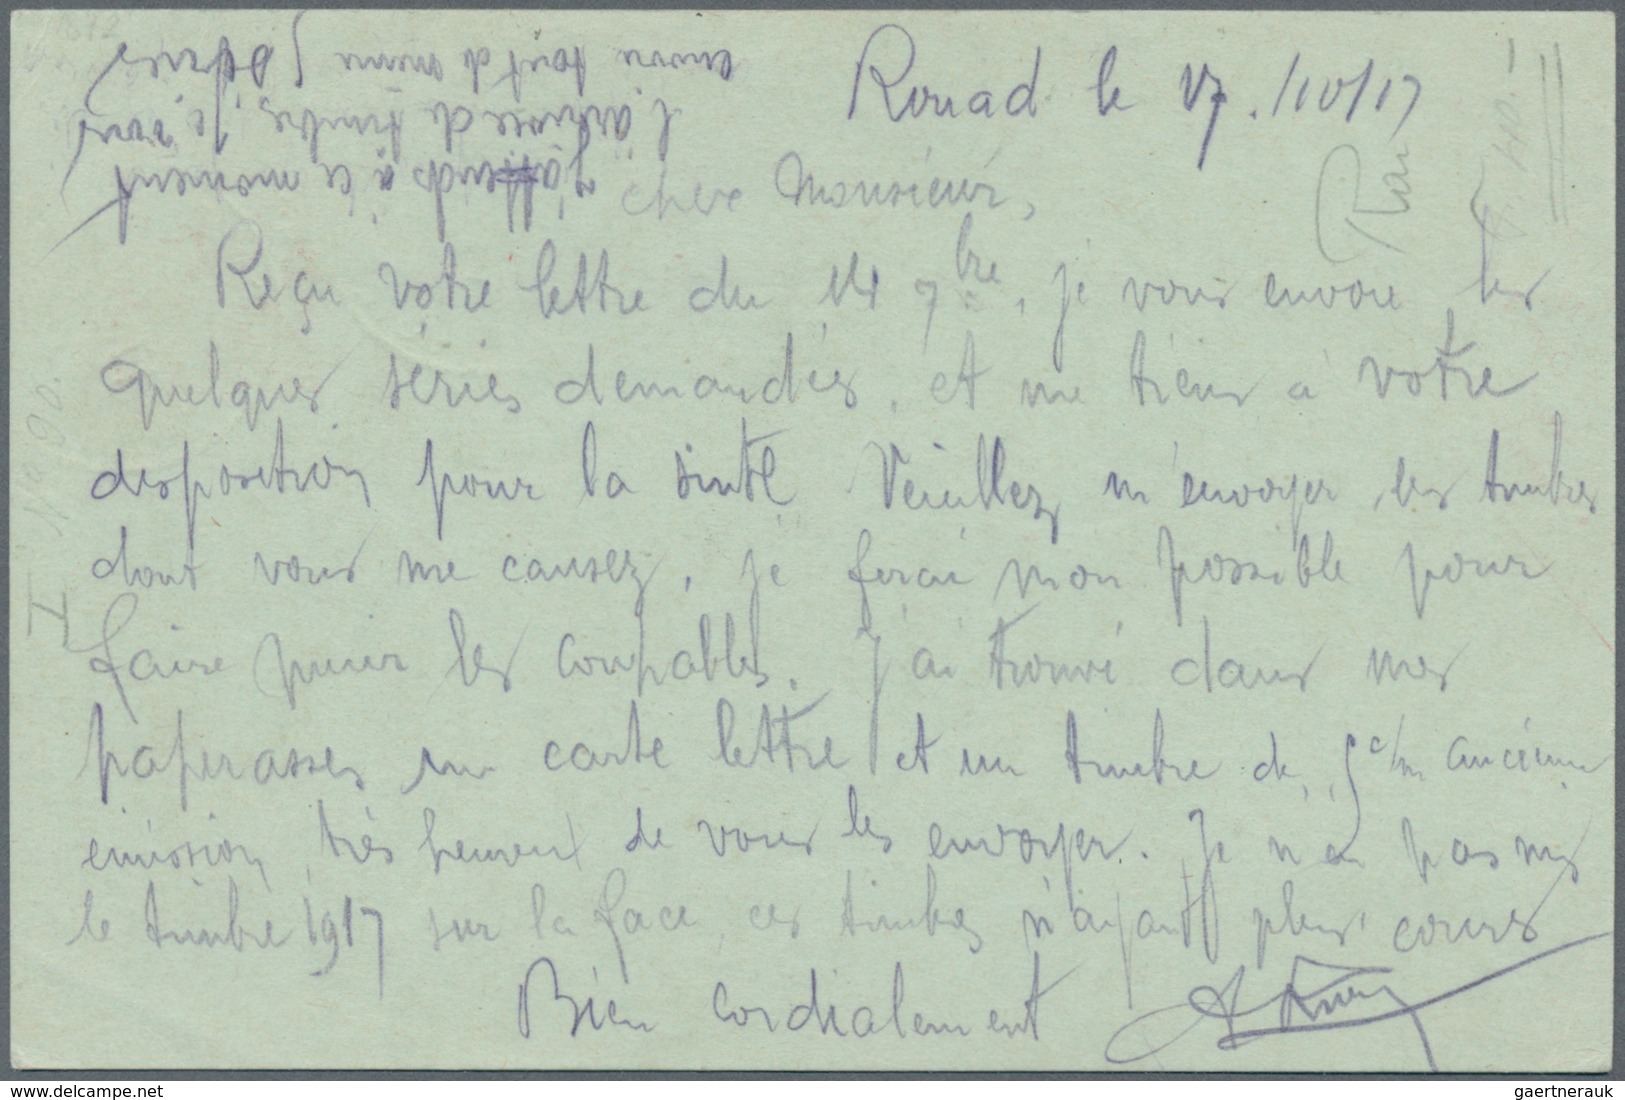 Rouad le 17/10/17
Cher Monsieur,
Reçu votre lettre du 14 7bre, je vous envoie les
quelques séries demandées, et me tiens à votre
disposition pour la suite Veuillez m'envoyer les timbres
dont vous me causez, je ferai mon possible pour
faire punir les coupables. J'ai trouvé dans mes
paperasses un carte lettre et un timbre de 5 c/m ancienne
émission, très heureux de vous les envoyer. Je n'ai pas mis
le timbre 1917 sur la face, ces timbres n'ayant plus cours
Bien cordialement
J'attends à ce moment
l'arrivée de timbres, je vous
envoie tout de même 5 séries
N° 90.
I